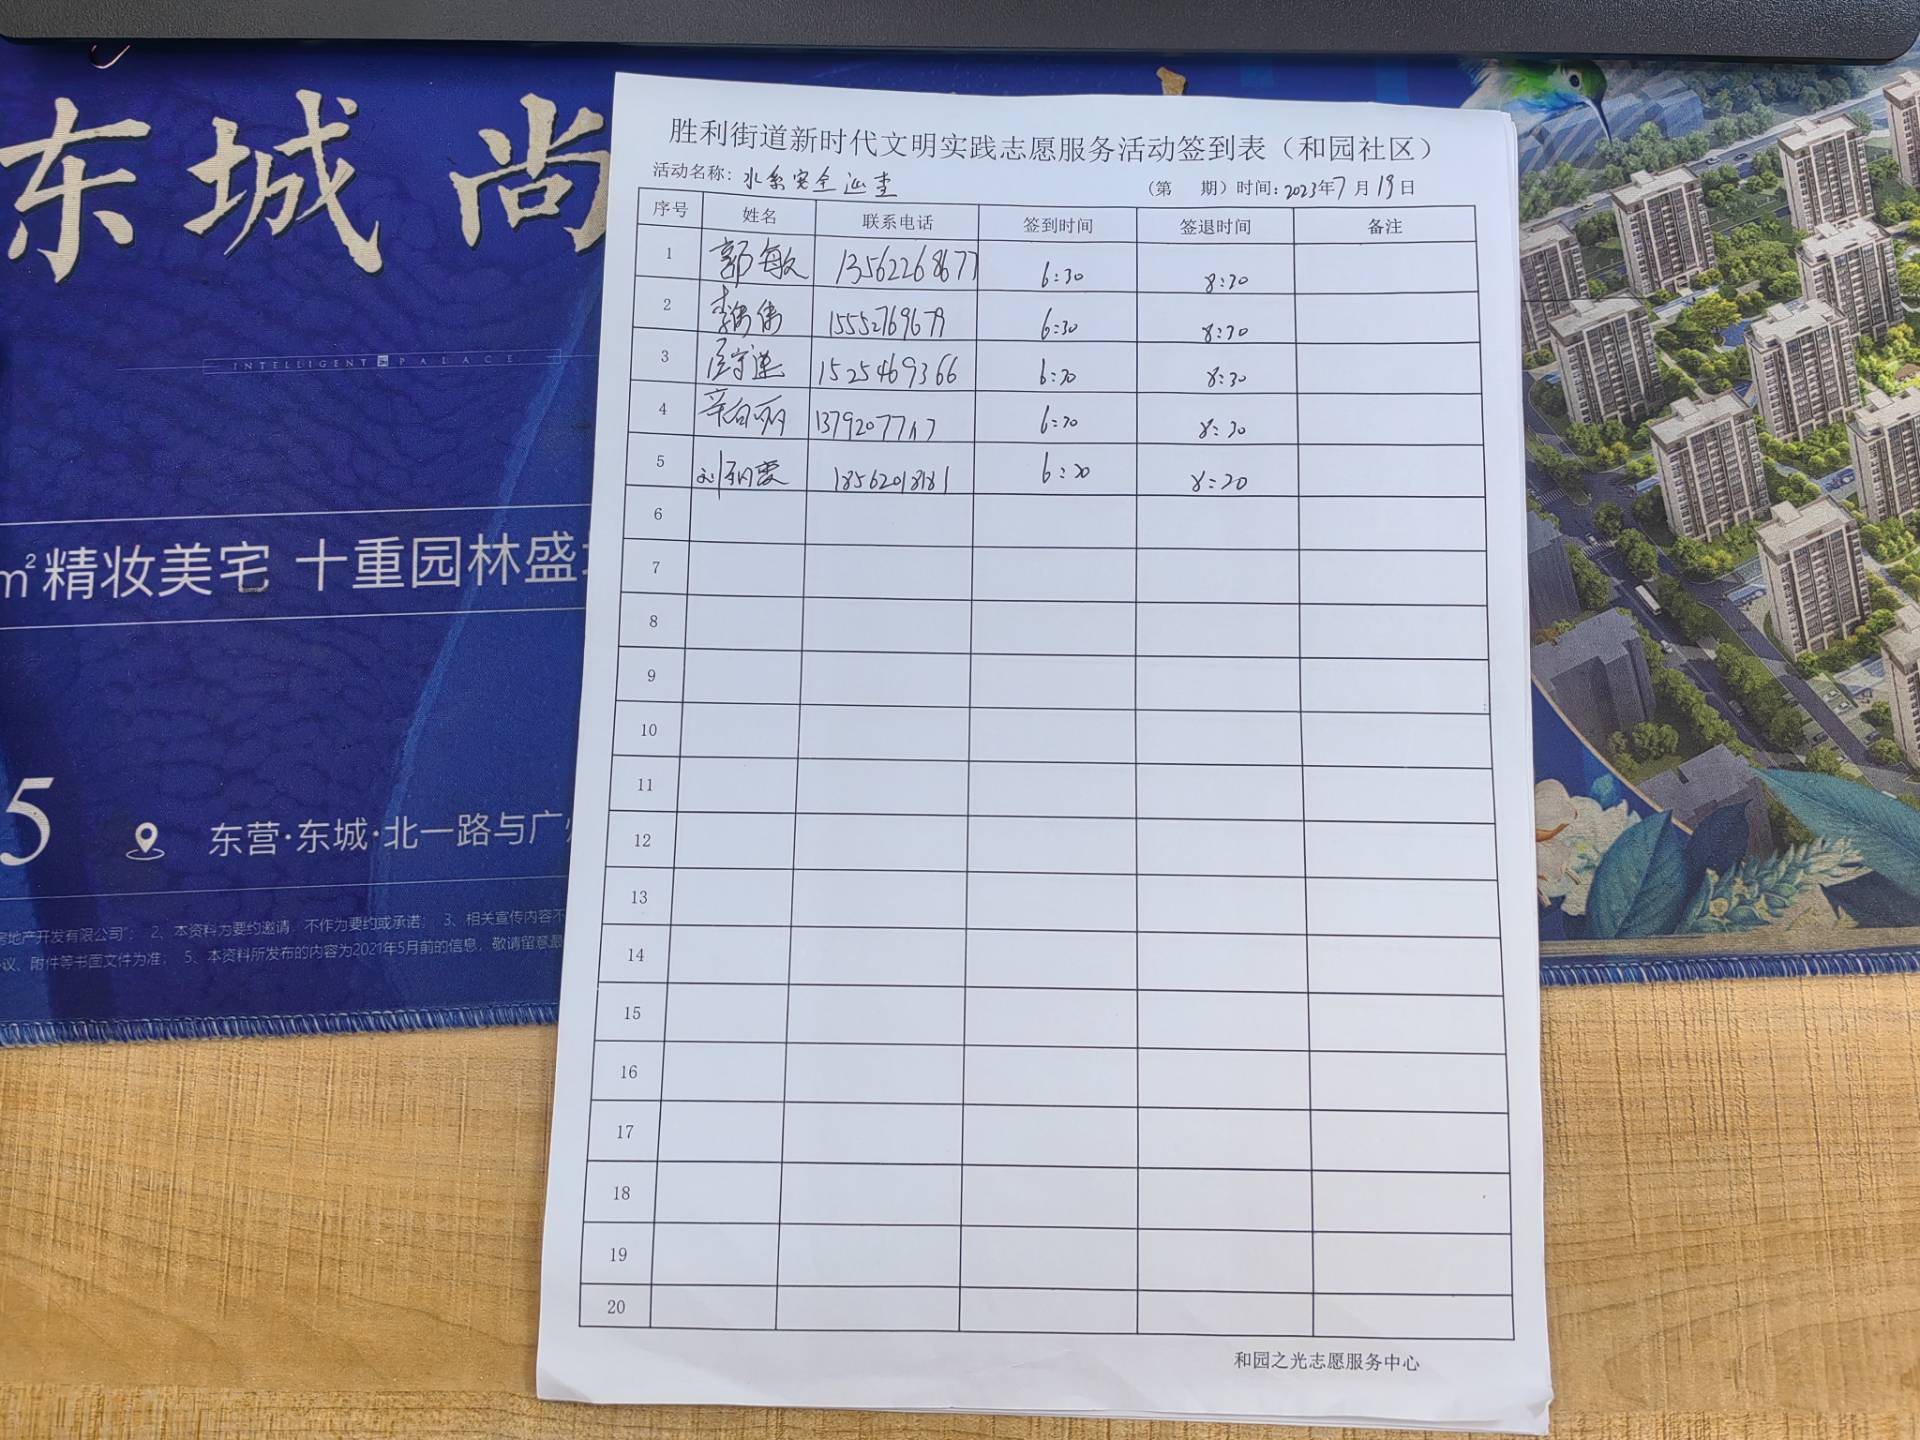 东城 尚
INTELLIGENT PALACE
m²精妆美宅 十重园林盛
5
东营·东城·北一路与广
房地产开发有限公司”； 2、本资料为要约邀请，不作为要约或承诺； 3、相关宣传内容不
议、附件等书面文件为准； 5、本资料所发布的内容为2021年5月前的信息，敬请留意最
胜利街道新时代文明实践志愿服务活动签到表（和园社区）
活动名称：水系安全巡查 （第 期）时间：2023年7月19日
序号 姓名 联系电话 签到时间 签退时间 备注
1 郭敏 13562268677 6:30 8:30
2 李伟 15552769679 6:30 8:30
3 守莲 1525469366 6:30 8:30
4 辛向丽 6:30 8:30
5 刘雯 18562018181 6:30 8:30
6
7
8
9
10
11
12
13
14
15
16
17
18
19
20
和园之光志愿服务中心